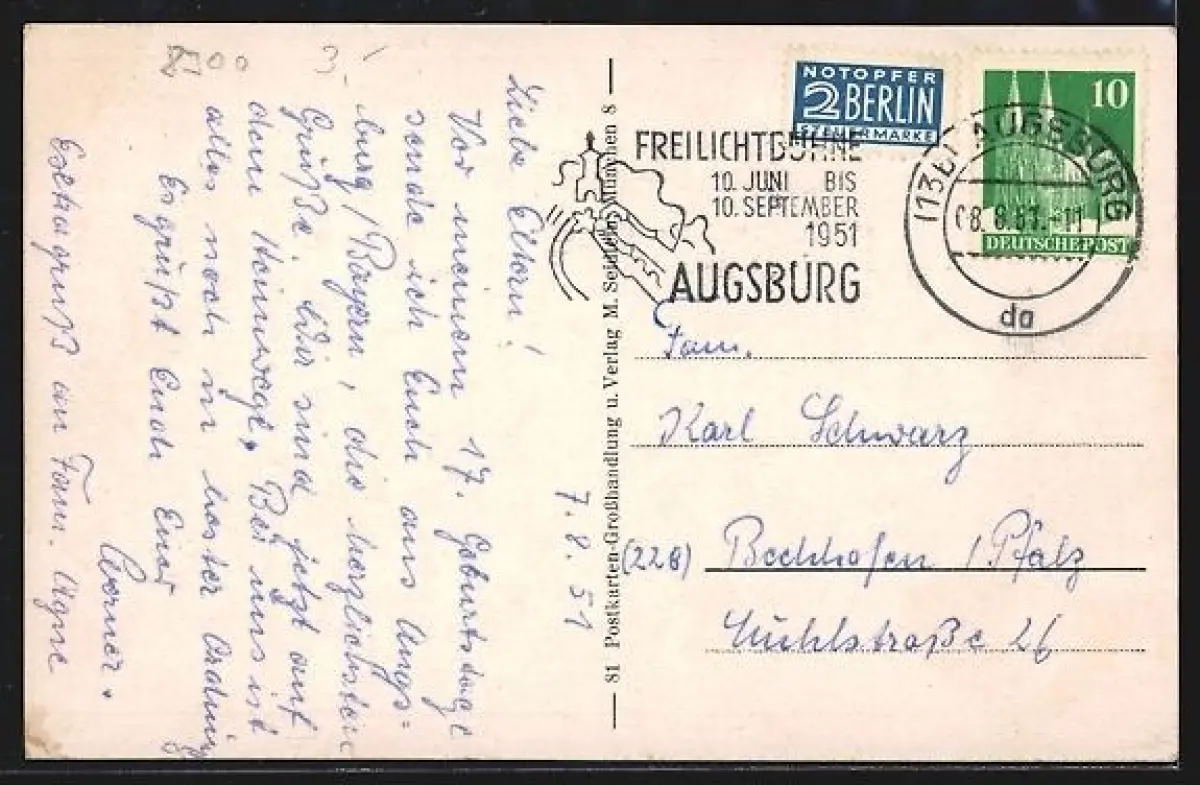 8500
3.-
Liebe Eltern!
Vor meinem 17. Geburtstage
sende ich Euch aus Augs=
burg / Bayern, die herzlichsten
Grüße. Wir sind jetzt auf
dem Heimwege. Bei uns ist
alles noch in bester Ordnung
Es grüßt Euch Euer
Werner.
Extragruß an Fam.
7.8.51
81 Postkarten-Großhandlung u. Verlag M. München 8
NOTOPFER
2 BERLIN
STEUERMARKE
10
DEUTSCHE POST
FREILICHTBÜHNE
10. JUNI BIS
10. SEPTEMBER
1951
AUGSBURG
(13b) AUGSBURG
da
Fam.
Karl Schwarz
(22b) Bechhofen / Pfalz
Mühlstraße 26